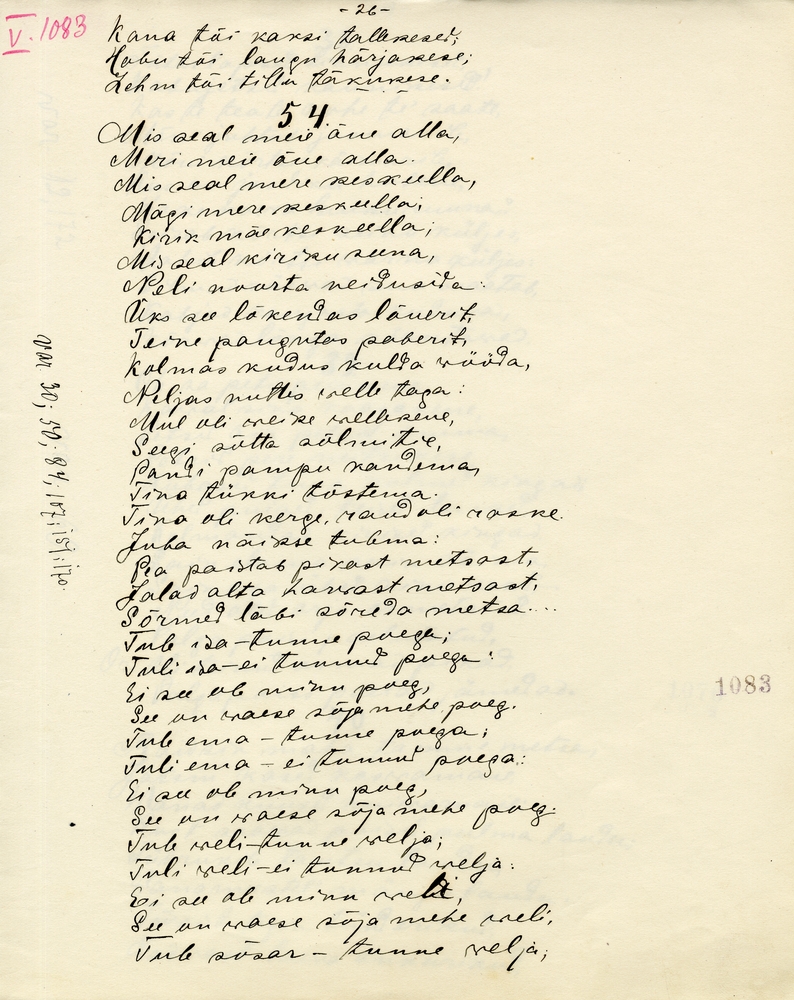 -26-
V. 1083
Kana tõi kaksi tallekesed;
Hobu tõi laugu härjakese;
Lehm tõi tillu täkukese.
54.
Mis seal meie õue alla,
Meri meie õue alla.
Mis seal mere keskeella,
Mägi mere keskeella;
Kirik mäe keskeella;
Mis seal kiriku seena,
Neli noorta neidusida:
Üks see lõkendas lõuerit,
Teine pangutas paberit,
Kolmas kudus kulda wööda,
Neljas nuttis welle taga:
Mul oli weike wellekene,
Seegi sõtta sõlmitie,
Pandi pampu kandema,
Tina tükki tõstema.
Tina oli kerge, raud oli raske.
Juba näikse tulema:
Pea paistab pikast metsast,
Jalad alta harwast metsast,
Sõrmed läbi sõreda metsa...
Tule isa-tunne poega;
Tuli isa-ei tunnud poega:
Ei see ole minu poeg,
See on waese sõja mehe poeg.
Tule ema - tunne poega;
Tuli ema - ei tunnud poega:
Ei see ole minu poeg,
See on waese sõja mehe poeg.
Tule weli-tunne welja;
Tuli weli-ei tunnud welja:
Ei see ole minu weli,
See on waese sõja mehe weli,
Tule sõsar - tunne welja;
var 30; 50; 84; 107; 151; 170.
1083